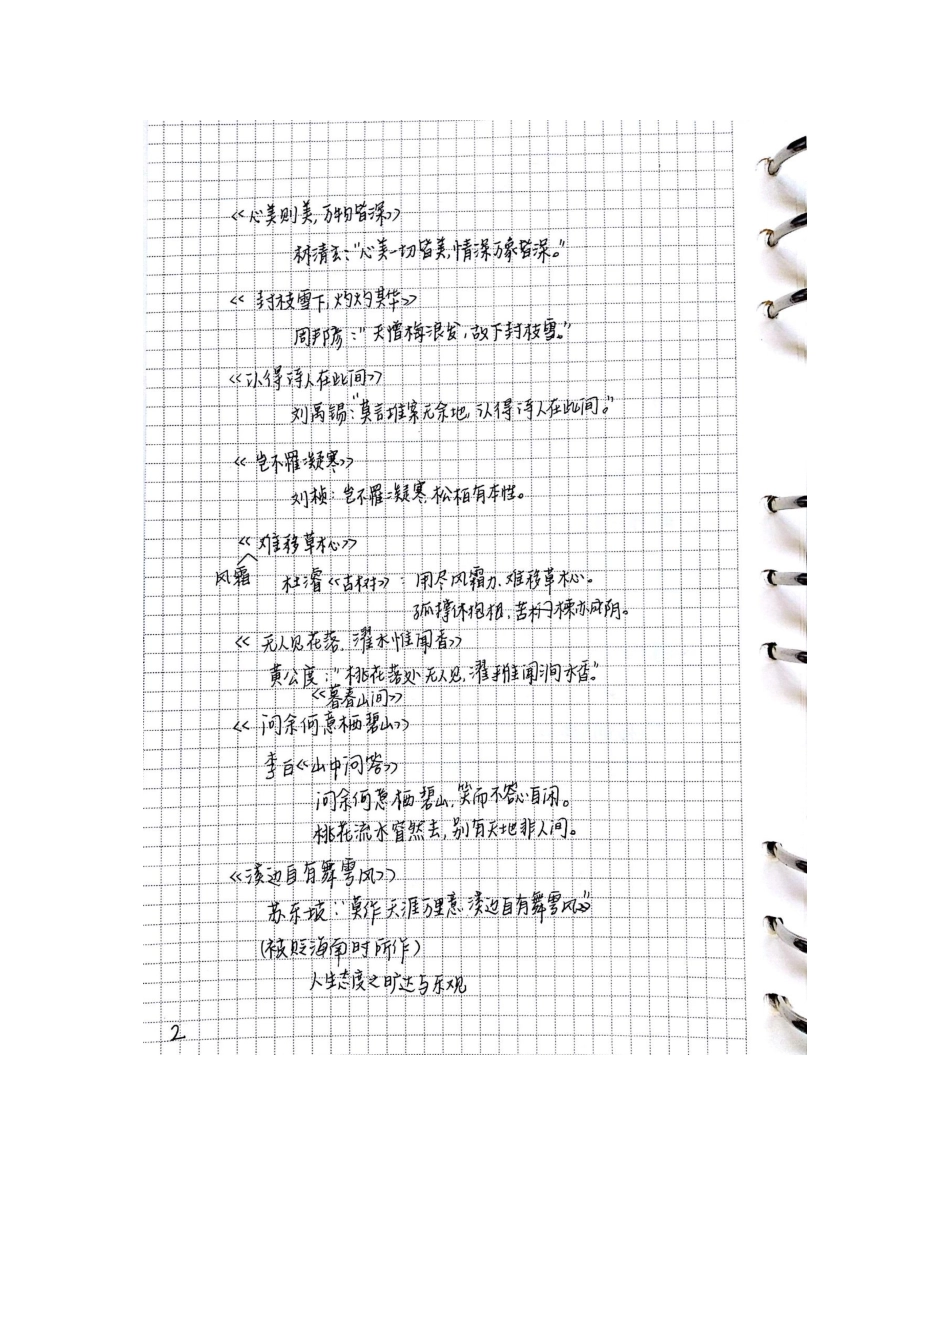 《心美则美，万物皆深》
林清玄："心美一切皆美，情深万象皆深。"
《封枝雪下，灼灼其华》
周邦彦："天憎梅浪发，故下封枝雪。"
《认得诗人在此间》
刘禹锡："莫言堆案无余地，认得诗人在此间。"
《岂不罹凝寒》
刘桢：岂不罹凝寒，松柏有本性。
《难移草木心》
风霜
杜濬《古树》：用尽风霜力，难移草木心。
孤撑休抱恨，苦楝亦成阴。
《无人见花落，濯水惟闻香》
黄公度："桃花落处无人见，濯手惟闻涧水香。"
《暮春山间》
《问余何意栖碧山》
李白《山中问答》
问余何意栖碧山，笑而不答心自闲。
桃花流水窅然去，别有天地非人间。
《溪边自有舞雩风》
苏东坡："莫作天涯万里意，溪边自有舞雩风》
(被贬海南时所作)
人生态度之旷达与乐观
2